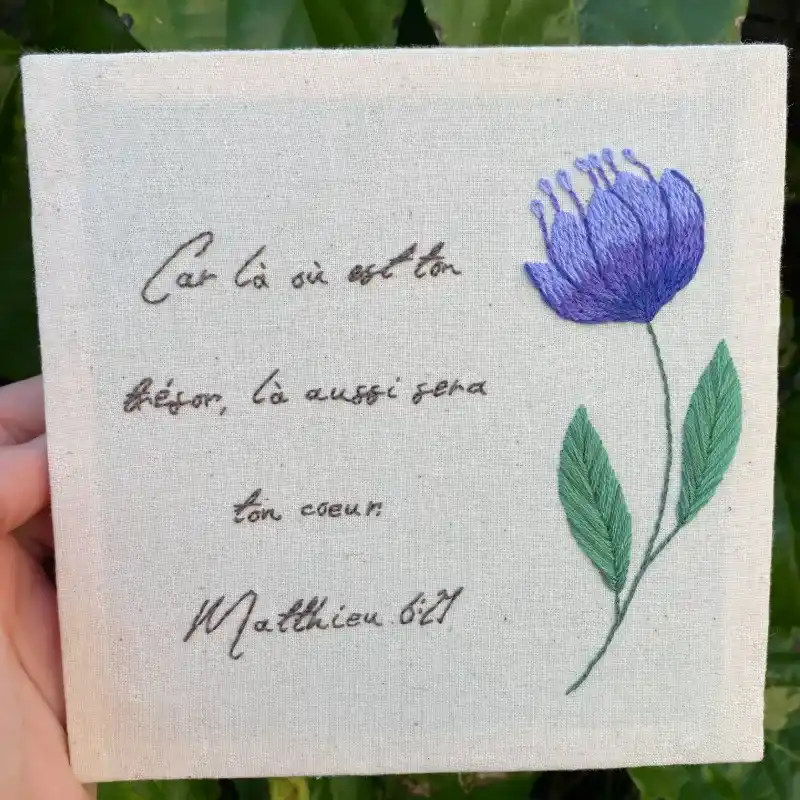 Car là où est ton
trésor, là aussi sera
ton coeur.
Matthieu 6:21